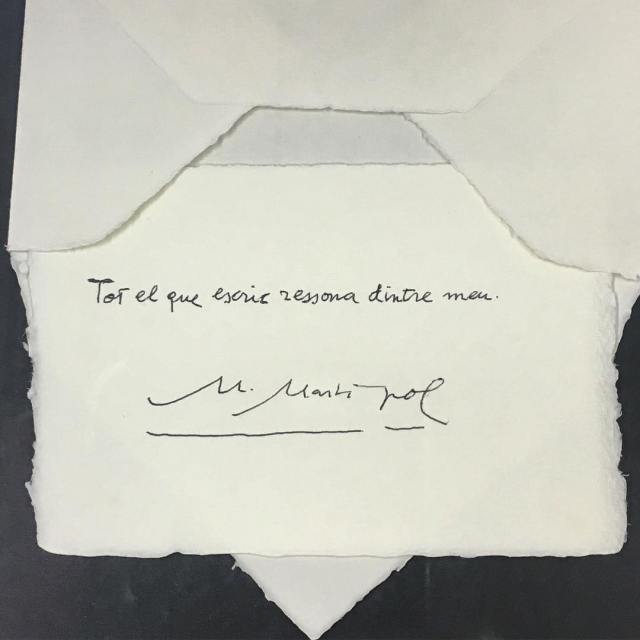 Tot el que escric ressona dintre meu.
M. Martí i Pol